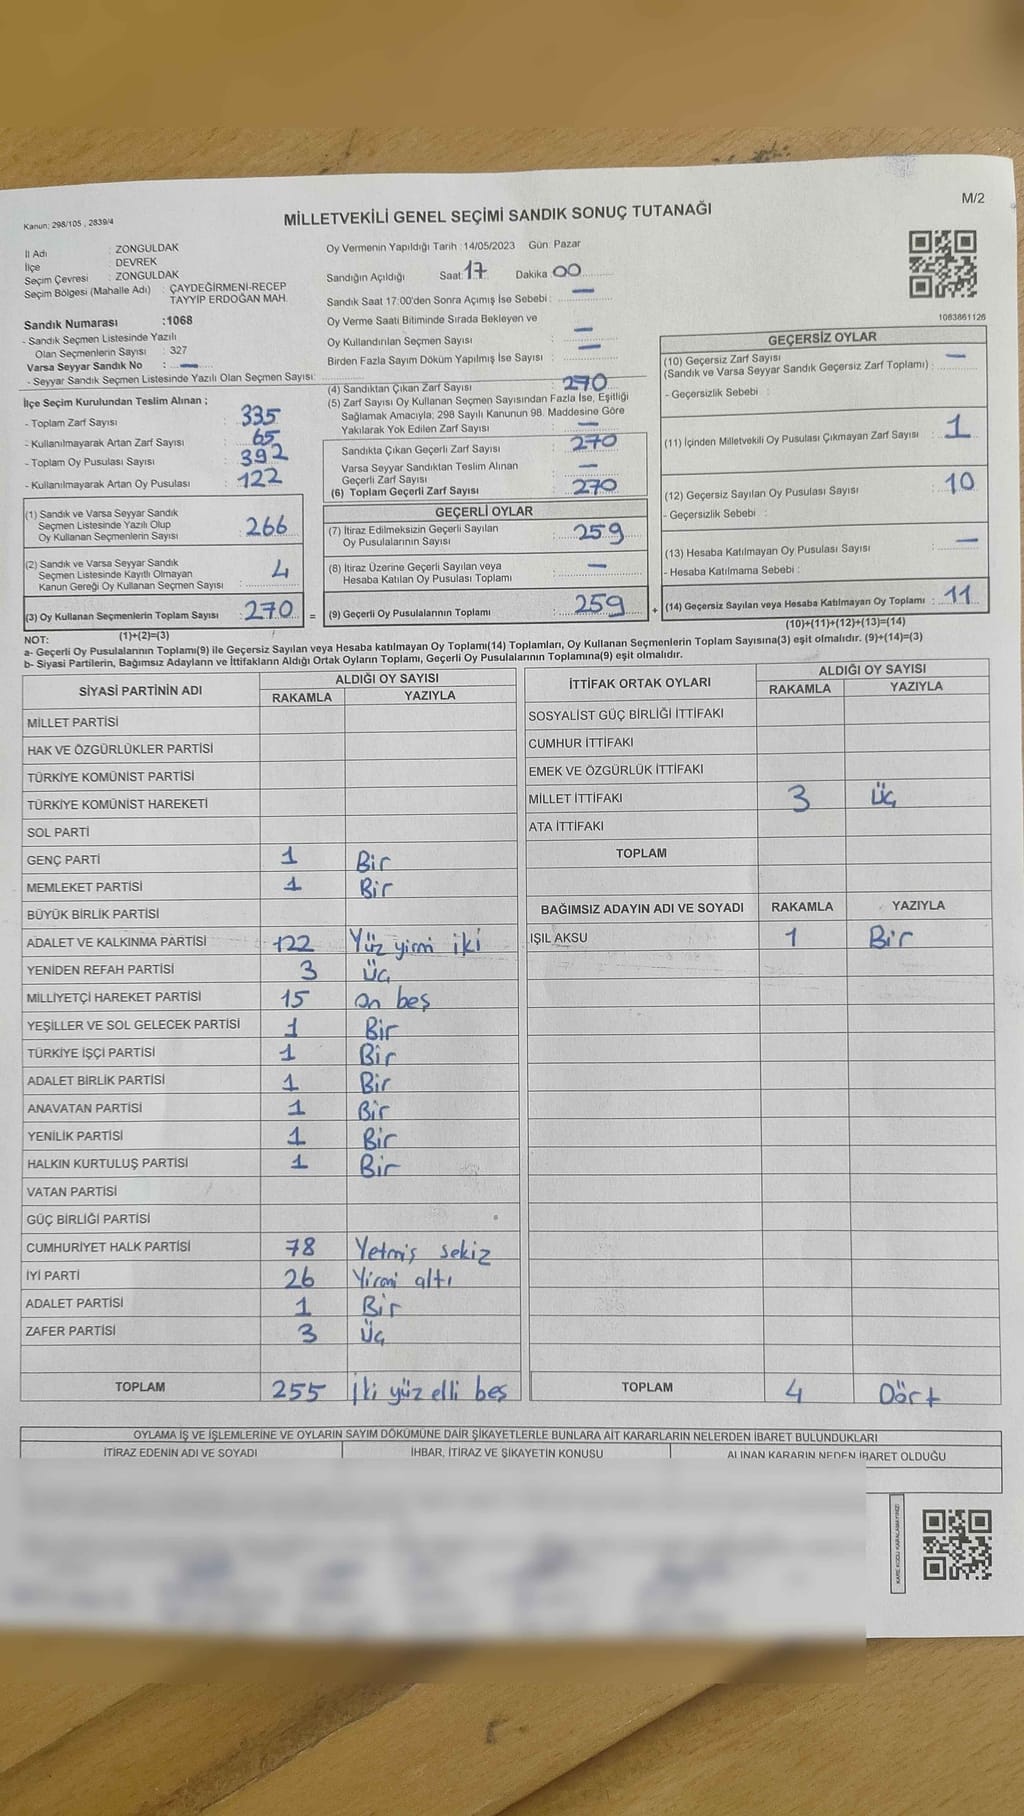 Kanun: 298/105 , 2839/4
M/2
MİLLETVEKİLİ GENEL SEÇİMİ SANDIK SONUÇ TUTANAĞI
İl Adı : ZONGULDAK
İlçe : DEVREK
Seçim Çevresi : ZONGULDAK
Seçim Bölgesi (Mahalle Adı) : ÇAYDEĞİRMENİ-RECEP
TAYYİP ERDOĞAN MAH.
Sandık Numarası :1068
- Sandık Seçmen Listesinde Yazılı
Olan Seçmenlerin Sayısı : 327
Varsa Seyyar Sandık No : —
- Seyyar Sandık Seçmen Listesinde Yazılı Olan Seçmen Sayısı:
Oy Vermenin Yapıldığı Tarih :14/05/2023 Gün: Pazar
Sandığın Açıldığı Saat: 17 Dakika 00
Sandık Saat 17:00'den Sonra Açımış İse Sebebi : —
Oy Verme Saati Bitiminde Sırada Bekleyen ve
Oy Kullandırılan Seçmen Sayısı : —
Birden Fazla Sayım Döküm Yapılmış İse Sayısı : —
1083861126
İlçe Seçim Kurulundan Teslim Alınan ;
- Toplam Zarf Sayısı : 335
- Kullanılmayarak Artan Zarf Sayısı : 65
- Toplam Oy Pusulası Sayısı : 392
- Kullanılmayarak Artan Oy Pusulası : 122
(1) Sandık ve Varsa Seyyar Sandık
Seçmen Listesinde Yazılı Olup
Oy Kullanan Seçmenlerin Sayısı : 266
(2) Sandık ve Varsa Seyyar Sandık
Seçmen Listesinde Kayıtlı Olmayan
Kanun Gereği Oy Kullanan Seçmen Sayısı : 4
(3) Oy Kullanan Seçmenlerin Toplam Sayısı : 270 =
(1)+(2)=(3)
(4) Sandıktan Çıkan Zarf Sayısı : 270
(5) Zarf Sayısı Oy Kullanan Seçmen Sayısından Fazla İse, Eşitliği
Sağlamak Amacıyla; 298 Sayılı Kanunun 98. Maddesine Göre
Yakılarak Yok Edilen Zarf Sayısı : —
Sandıkta Çıkan Geçerli Zarf Sayısı : 270
Varsa Seyyar Sandıktan Teslim Alınan
Geçerli Zarf Sayısı : —
(6) Toplam Geçerli Zarf Sayısı : 270
GEÇERLİ OYLAR
(7) İtiraz Edilmeksizin Geçerli Sayılan
Oy Pusulalarının Sayısı : 259
(8) İtiraz Üzerine Geçerli Sayılan veya
Hesaba Katılan Oy Pusulası Toplamı : —
(9) Geçerli Oy Pusulalarının Toplamı : 259 +
GEÇERSİZ OYLAR
(10) Geçersiz Zarf Sayısı
(Sandık ve Varsa Seyyar Sandık Geçersiz Zarf Toplamı) : —
- Geçersizlik Sebebi :
(11) İçinden Milletvekili Oy Pusulası Çıkmayan Zarf Sayısı : 1
(12) Geçersiz Sayılan Oy Pusulası Sayısı : 10
- Geçersizlik Sebebi :
(13) Hesaba Katılmayan Oy Pusulası Sayısı : —
- Hesaba Katılmama Sebebi :
(14) Geçersiz Sayılan veya Hesaba Katılmayan Oy Toplamı : 11
(10)+(11)+(12)+(13)=(14)
NOT:
a- Geçerli Oy Pusulalarının Toplamı(9) ile Geçersiz Sayılan veya Hesaba katılmayan Oy Toplamı(14) Toplamları, Oy Kullanan Seçmenlerin Toplam Sayısına(3) eşit olmalıdır. (9)+(14)=(3)
b- Siyasi Partilerin, Bağımsız Adayların ve İttifakların Aldığı Ortak Oyların Toplamı, Geçerli Oy Pusulalarının Toplamına(9) eşit olmalıdır.
SİYASİ PARTİNİN ADI ALDIĞI OY SAYISI
RAKAMLA YAZIYLA
MİLLET PARTİSİ
HAK VE ÖZGÜRLÜKLER PARTİSİ
TÜRKİYE KOMÜNİST PARTİSİ
TÜRKİYE KOMÜNİST HAREKETİ
SOL PARTİ
GENÇ PARTİ 1 Bir
MEMLEKET PARTİSİ 1 Bir
BÜYÜK BİRLİK PARTİSİ
ADALET VE KALKINMA PARTİSİ 122 Yüz yirmi iki
YENİDEN REFAH PARTİSİ 3 Üç
MİLLİYETÇİ HAREKET PARTİSİ 15 on beş
YEŞİLLER VE SOL GELECEK PARTİSİ 1 Bir
TÜRKİYE İŞÇİ PARTİSİ 1 Bir
ADALET BİRLİK PARTİSİ 1 Bir
ANAVATAN PARTİSİ 1 Bir
YENİLİK PARTİSİ 1 Bir
HALKIN KURTULUŞ PARTİSİ 1 Bir
VATAN PARTİSİ
GÜÇ BİRLİĞİ PARTİSİ
CUMHURİYET HALK PARTİSİ 78 Yetmiş sekiz
İYİ PARTİ 26 Yirmi altı
ADALET PARTİSİ 1 Bir
ZAFER PARTİSİ 3 Üç
TOPLAM 255 İki yüz elli beş
İTTİFAK ORTAK OYLARI ALDIĞI OY SAYISI
RAKAMLA YAZIYLA
SOSYALİST GÜÇ BİRLİĞİ İTTİFAKI
CUMHUR İTTİFAKI
EMEK VE ÖZGÜRLÜK İTTİFAKI
MİLLET İTTİFAKI 3 Üç
ATA İTTİFAKI
TOPLAM
BAĞIMSIZ ADAYIN ADI VE SOYADI RAKAMLA YAZIYLA
IŞIL AKSU 1 Bir
TOPLAM 4 Dört
OYLAMA İŞ VE İŞLEMLERİNE VE OYLARIN SAYIM DÖKÜMÜNE DAİR ŞİKAYETLERLE BUNLARA AİT KARARLARIN NELERDEN İBARET BULUNDUKLARI
İTİRAZ EDENİN ADI VE SOYADI İHBAR, İTİRAZ VE ŞİKAYETİN KONUSU ALINAN KARARIN NEDEN İBARET OLDUĞU